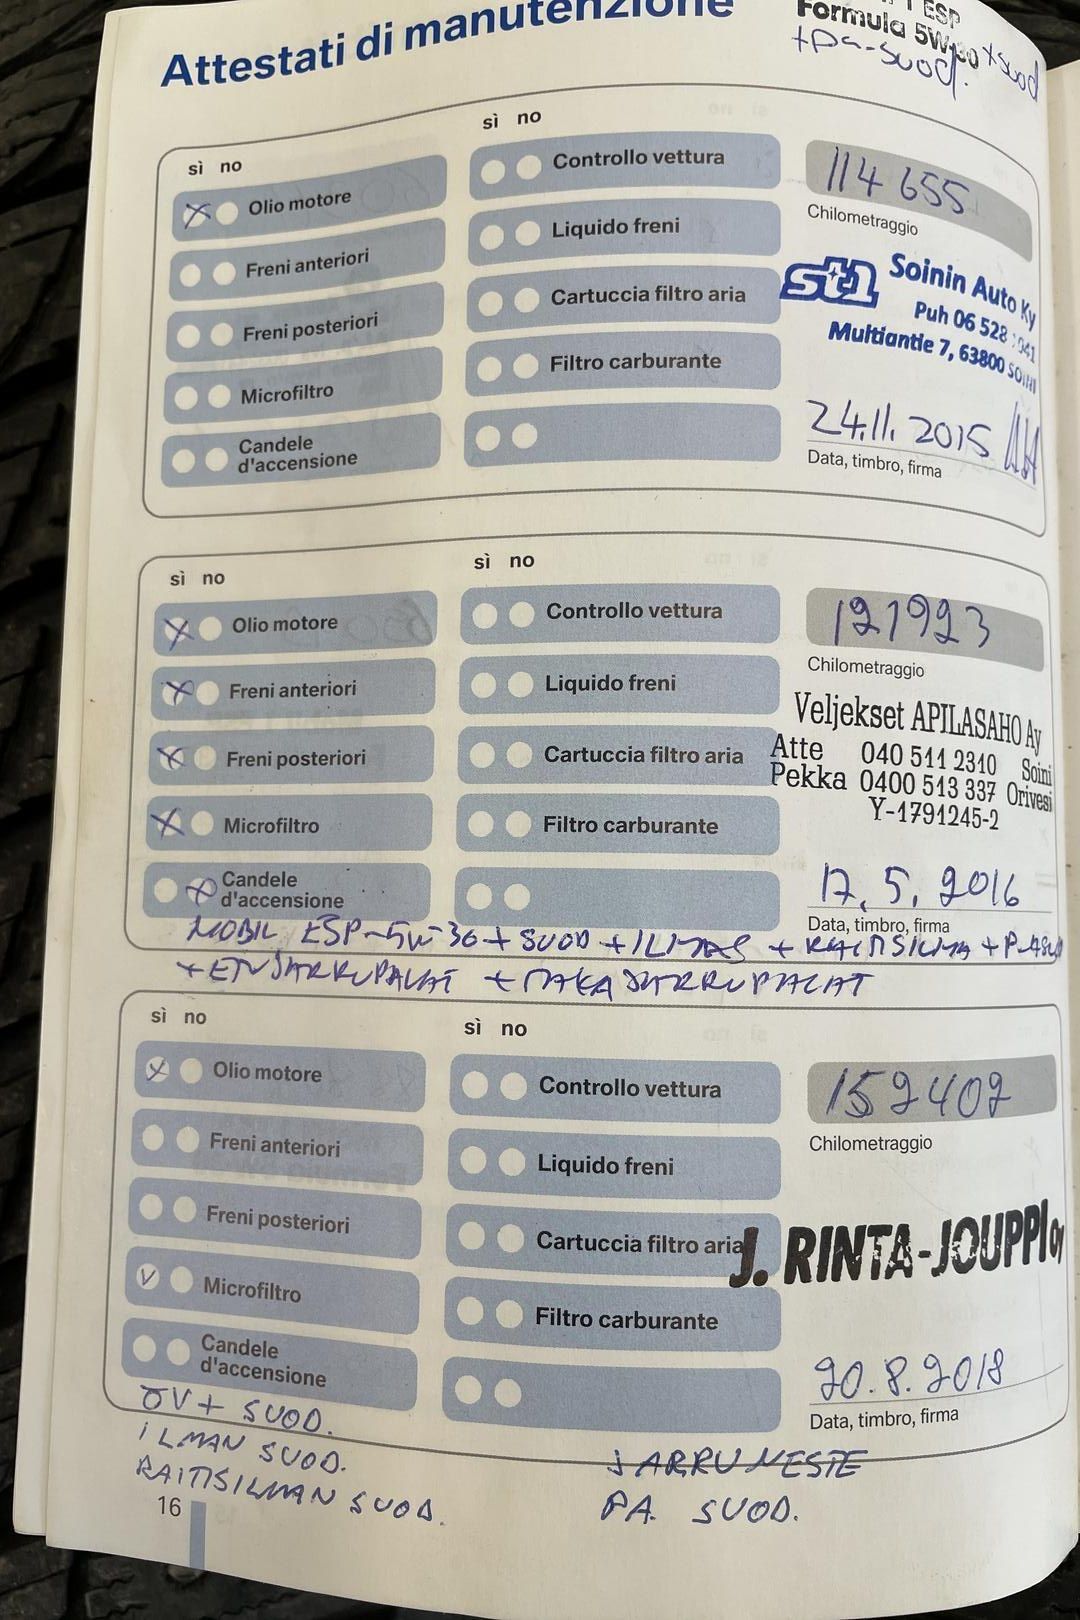 Attestati di manutenzione
ESP
Formula 5W-30 + suod
+pa-suod.
sì no
sì no
Olio motore
Freni anteriori
Freni posteriori
Microfiltro
Candele
d'accensione
Controllo vettura
Liquido freni
Cartuccia filtro aria
Filtro carburante
114 655
Chilometraggio
st1 Soinin Auto Ky
Puh 06 528 1041
Multiantie 7, 63800 SOINI
24.11. 2015
Data, timbro, firma
sì no
sì no
Olio motore
Freni anteriori
Freni posteriori
Microfiltro
Candele
d'accensione
Controllo vettura
Liquido freni
Cartuccia filtro aria
Filtro carburante
121923
Chilometraggio
Veljekset APILASAHO Ay
Atte 040 511 2310 Soini
Pekka 0400 513 337 Orivesi
Y-1791245-2
17. 5. 2016
Data, timbro, firma
MOBIL ESP-5W-30 + SUOD + ILMAS + RAITISILMA +
+ ETUJARRUPALAT + TAKAJARRUPALAT
sì no
sì no
Olio motore
Freni anteriori
Freni posteriori
Microfiltro
Candele
d'accensione
Controllo vettura
Liquido freni
Cartuccia filtro aria
Filtro carburante
152402
Chilometraggio
J. RINTA-JOUPPI Oy
20.8.2018
Data, timbro, firma
ÖV + SUOD.
ILMAN SUOD.
RAITISILMAN SUOD.
JARRUNESTE
PA. SUOD.
16